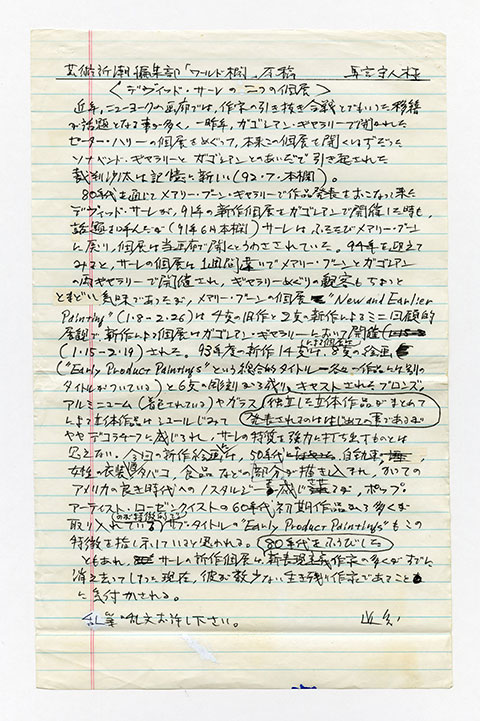 芸術新潮編集部「ワールド欄」原稿
〈デヴィッド・サーレの二つの個展〉
近年、ニューヨークの画廊では、作家の引き抜き合戦とでもいった移籍
が話題となる事が多く、一昨年、ガゴシアン・ギャラリーで開かれた
ピーター・ハリーの個展をめぐって、本来この個展を開くはずだった
ソナベンド・ギャラリーとガゴシアンとのあいだで引き起された
裁判沙汰は記憶に新しい(92・7・本欄)。
80年代を通じてメアリー・ブーン・ギャラリーで作品発表をおこなって来た
デヴィッド・サーレが、91年の新作個展をガゴシアンで開催した時も、
話題を呼んだが(91年6月本欄)サーレは、ふたたびメアリー・ブーン
に戻り、個展は当画廊で開くとうわさされていた。94年を迎えて
みると、サーレの個展は1週間違いでメアリー・ブーンとガゴシアン
の両ギャラリーで開催され、ギャラリーめぐりの観客もちょっと
とまどい気味であったが、メアリー・ブーンの個展 "New and Earlier
Paintings" (1・8-2・26)は4支の旧作と2支の新作によるミニ回顧的
展観で、新作による個展はガゴシアン・ギャラリーにおいて開催
(1・15-2・19)された。93年度の新作14支による個展は、8支の絵画
("Early Product Paintings"という総合的タイトル-各々一作品には別の
タイトルがついている)と6支の彫刻から成り、キャストされたブロンズ、
アルミニューム(着色されている)やガラス 独立した立体作品がまとめて
発表されるのははじめての事であるが
による立体作品はシュールじみて
ややデコラチーフに感じられ、サーレの特質を強力に打ち出すものとは
思えない。今回の新作絵画は、50年代 自動車、
女性の衣装、タバコ、食品などの部分が描き込まれ、かつての
アメリカの良き時代へのノスタルジーを感じ が、ポップ・
アーティスト・ローゼンクイストの60年代初期作品から多くを
取り入れているのが特徴的で サブ・タイトルの"Early Product Paintings"もこの
特徴を指し示していると思われる。80年代をふうびした
ともあれ、サーレの新作個展は、新表現主義作家の多くがすでに
消え去ってしまった現在、彼が数少ない生き残り作家であること
に気付かされる。
乱筆・乱文お許し下さい。